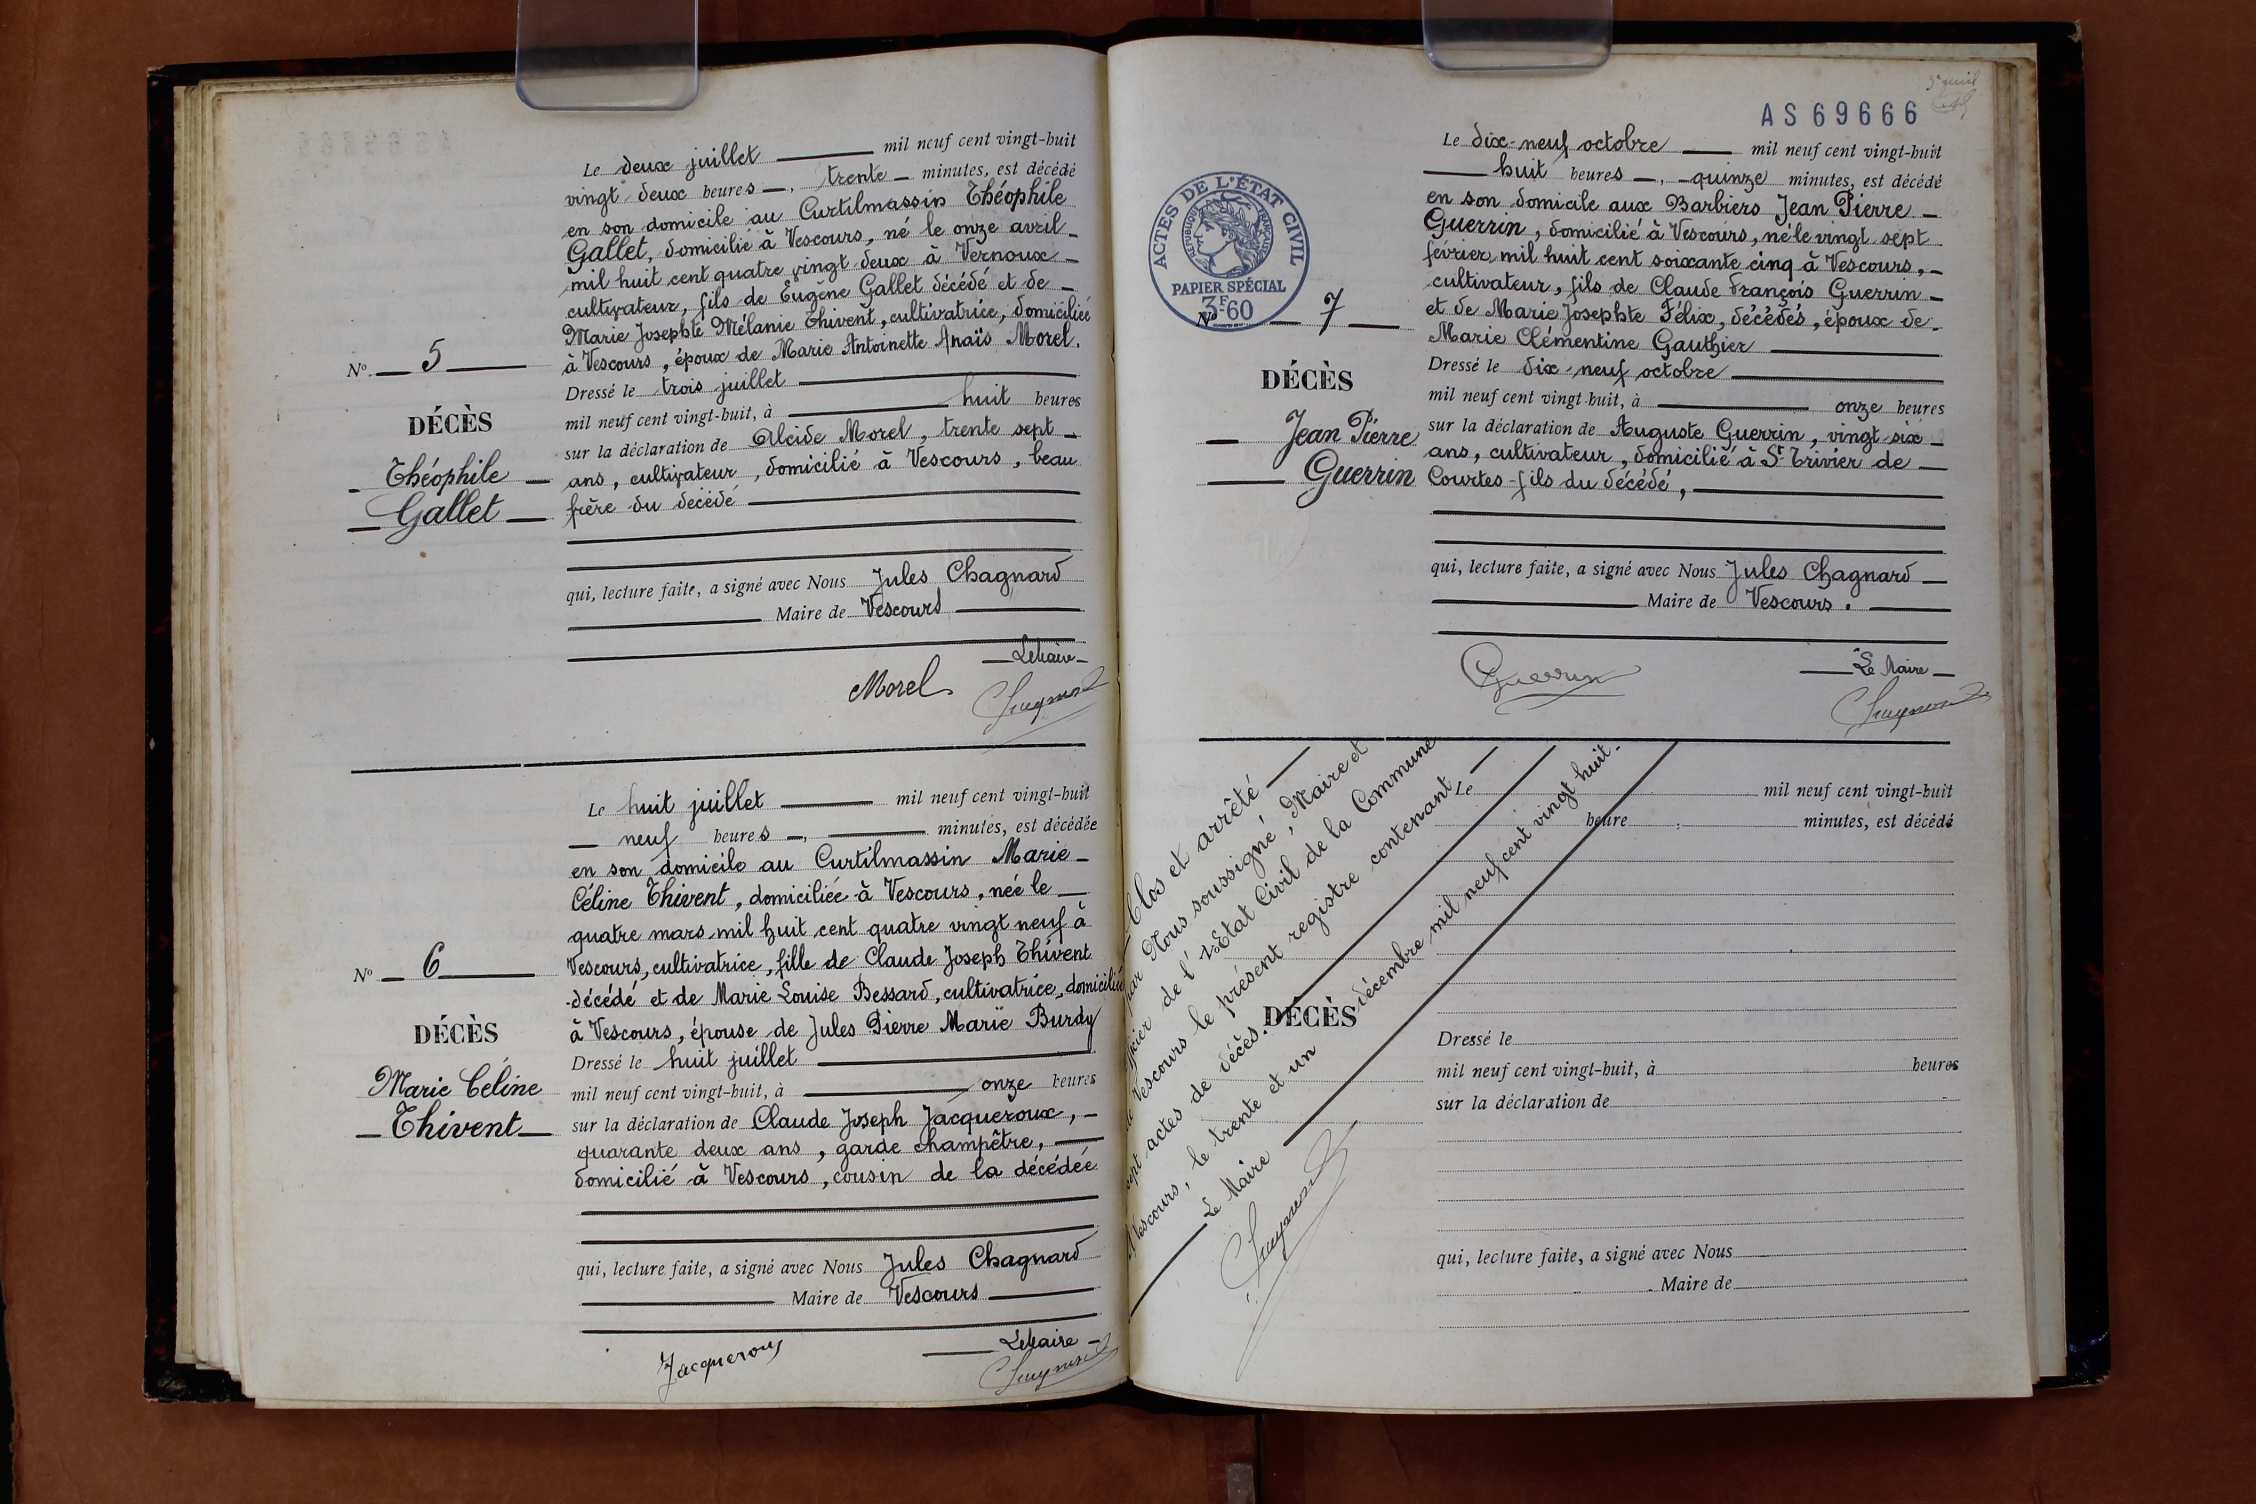 Le deux juillet mil neuf cent vingt-huit
vingt deux heures, trente minutes, est décédé
en son domicile au Curtilmassin Théophile
Gallet, domicilié à Vescours, né le onze avril
mil huit cent quatre vingt deux à Vernoux
cultivateur, fils de Eugène Gallet décédé et de
Marie Josephte Mélanie Thivent, cultivatrice, domiciliée
à Vescours, époux de Marie Antoinette Anaïs Morel.
Dressé le trois juillet
mil neuf cent vingt-huit, à huit heures
sur la déclaration de Alcide Morel, trente sept
ans, cultivateur, domicilié à Vescours, beau
frère du décédé
qui, lecture faite, a signé avec Nous Jules Chagnard
Maire de Vescours
Le Maire
Morel
Chagnard
No 5
DÉCÈS
Théophile
Gallet
Le huit juillet mil neuf cent vingt-huit
neuf heures, minutes, est décédée
en son domicile au Curtilmassin Marie
Céline Thivent, domiciliée à Vescours, née le
quatre mars mil huit cent quatre vingt neuf à
Vescours, cultivatrice, fille de Claude Joseph Thivent
décédé et de Marie Louise Bessard, cultivatrice, domiciliée
à Vescours, épouse de Jules Pierre Marie Burdy
Dressé le huit juillet
mil neuf cent vingt-huit, à onze heures
sur la déclaration de Claude Joseph Jacqueroux,
quarante deux ans, garde champêtre,
domicilié à Vescours, cousin de la décédée
qui, lecture faite, a signé avec Nous Jules Chagnard
Maire de Vescours
Le Maire
Jacqueroux
Chagnard
No 6
DÉCÈS
Marie Céline
Thivent
AS 69666
ACTES DE L'ÉTAT CIVIL
RÉPUBLIQUE FRANÇAISE
PAPIER SPÉCIAL
3F60
Le dix-neuf octobre mil neuf cent vingt-huit
huit heures, quinze minutes, est décédé
en son domicile aux Barbiers Jean Pierre
Guerrin, domicilié à Vescours, né le vingt sept
février mil huit cent soixante cinq à Vescours,
cultivateur, fils de Claude François Guerrin
et de Marie Josephte Félix, décédés, époux de
Marie Clémentine Gauthier
Dressé le dix-neuf octobre
mil neuf cent vingt-huit, à onze heures
sur la déclaration de Auguste Guerrin, vingt six
ans, cultivateur, domicilié à St Trivier de
Courtes fils du décédé,
qui, lecture faite, a signé avec Nous Jules Chagnard
Maire de Vescours.
Le Maire
Guerrin
Chagnard
No 7
DÉCÈS
Jean Pierre
Guerrin
Clos et arrêté
par Nous soussigné, Maire et
officier de l'Etat Civil de la Commune
de Vescours le présent registre contenant
sept actes de décès.
A Vescours, le trente et un décembre mil neuf cent vingt huit.
Le Maire
Chagnard
DÉCÈS
Le mil neuf cent vingt-huit
heure minutes, est décédé
Dressé le
mil neuf cent vingt-huit, à heures
sur la déclaration de
qui, lecture faite, a signé avec Nous
Maire de